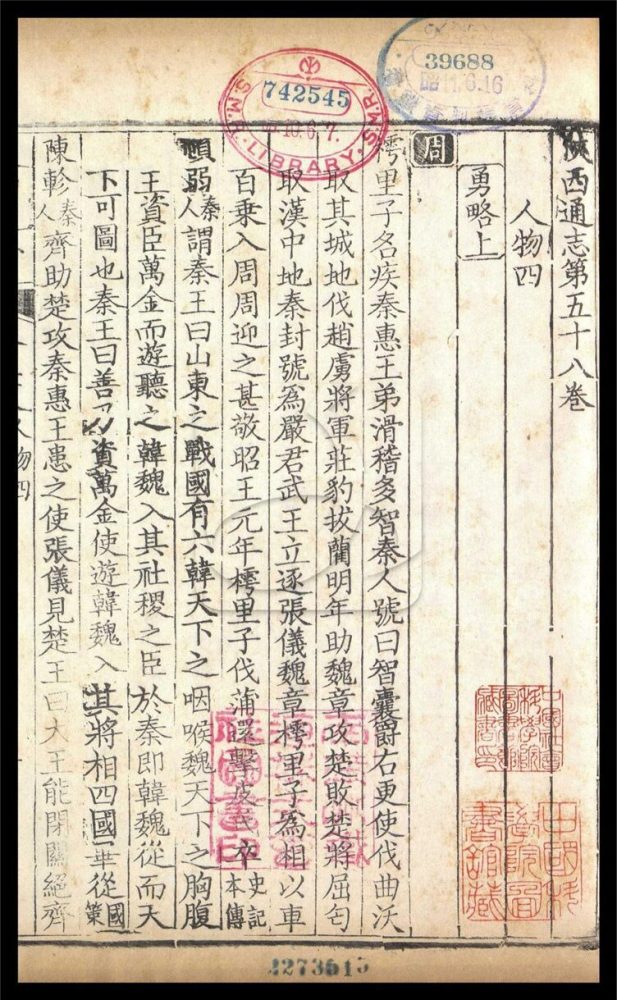 陝西通志第五十八卷
人物四
勇略上
周
樗里子名疾秦惠王弟滑稽多智秦人號曰智囊爵右更使伐曲沃
取其城地伐趙虜將軍莊豹拔藺明年助魏章攻楚敗楚將屈匄
取漢中地秦封號為嚴君武王立逐張儀魏章樗里子為相以車
百乘入周周迎之甚敬昭王元年樗里子伐蒲還擊皮氏卒史記本傳
頓弱秦人謂秦王曰山東之戰國有六韓天下之咽喉魏天下之胸腹
王資臣萬金而遊聽之韓魏入其社稷之臣於秦即韓魏從而天
下可圖也秦王曰善乃資萬金使遊韓魏入其將相四國畢從國策
陳軫秦人齊助楚攻秦惠王患之使張儀見楚王曰大王能閉關絕齊
人物四
742545
S.M.R. LIBRARY
39688
昭 11.6.16
中國科學院圖書館藏
3273515